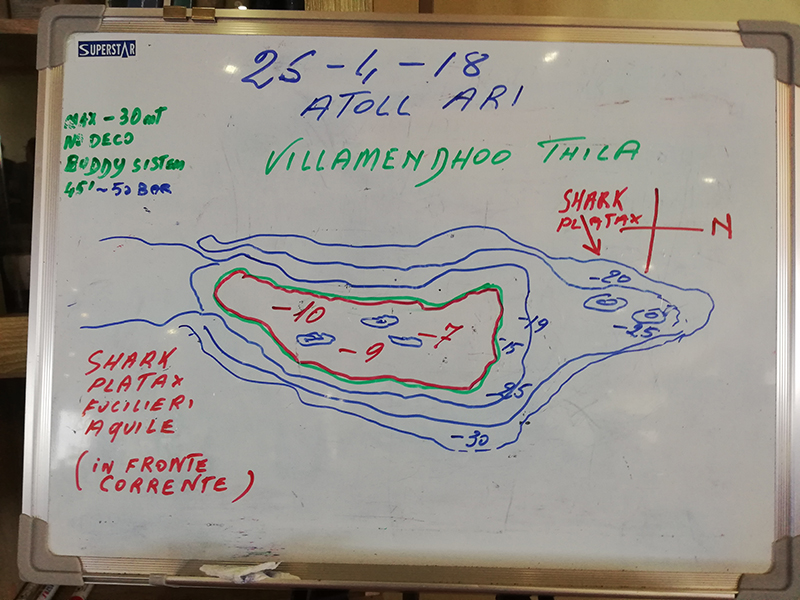 SUPERSTAR
25-4-18
ATOLL ARI
MAX -30 mT
NO DECO
BUDDY SISTEM
45' ~ 50 BAR
VILLAMENDHOO THILA
SHARK
PLATAX
N
-20
-25
-10
-7
-9
-19
-15
-25
-30
SHARK
PLATAX
FUCILIERI
AQUILE
(IN FRONTE
CORRENTE)